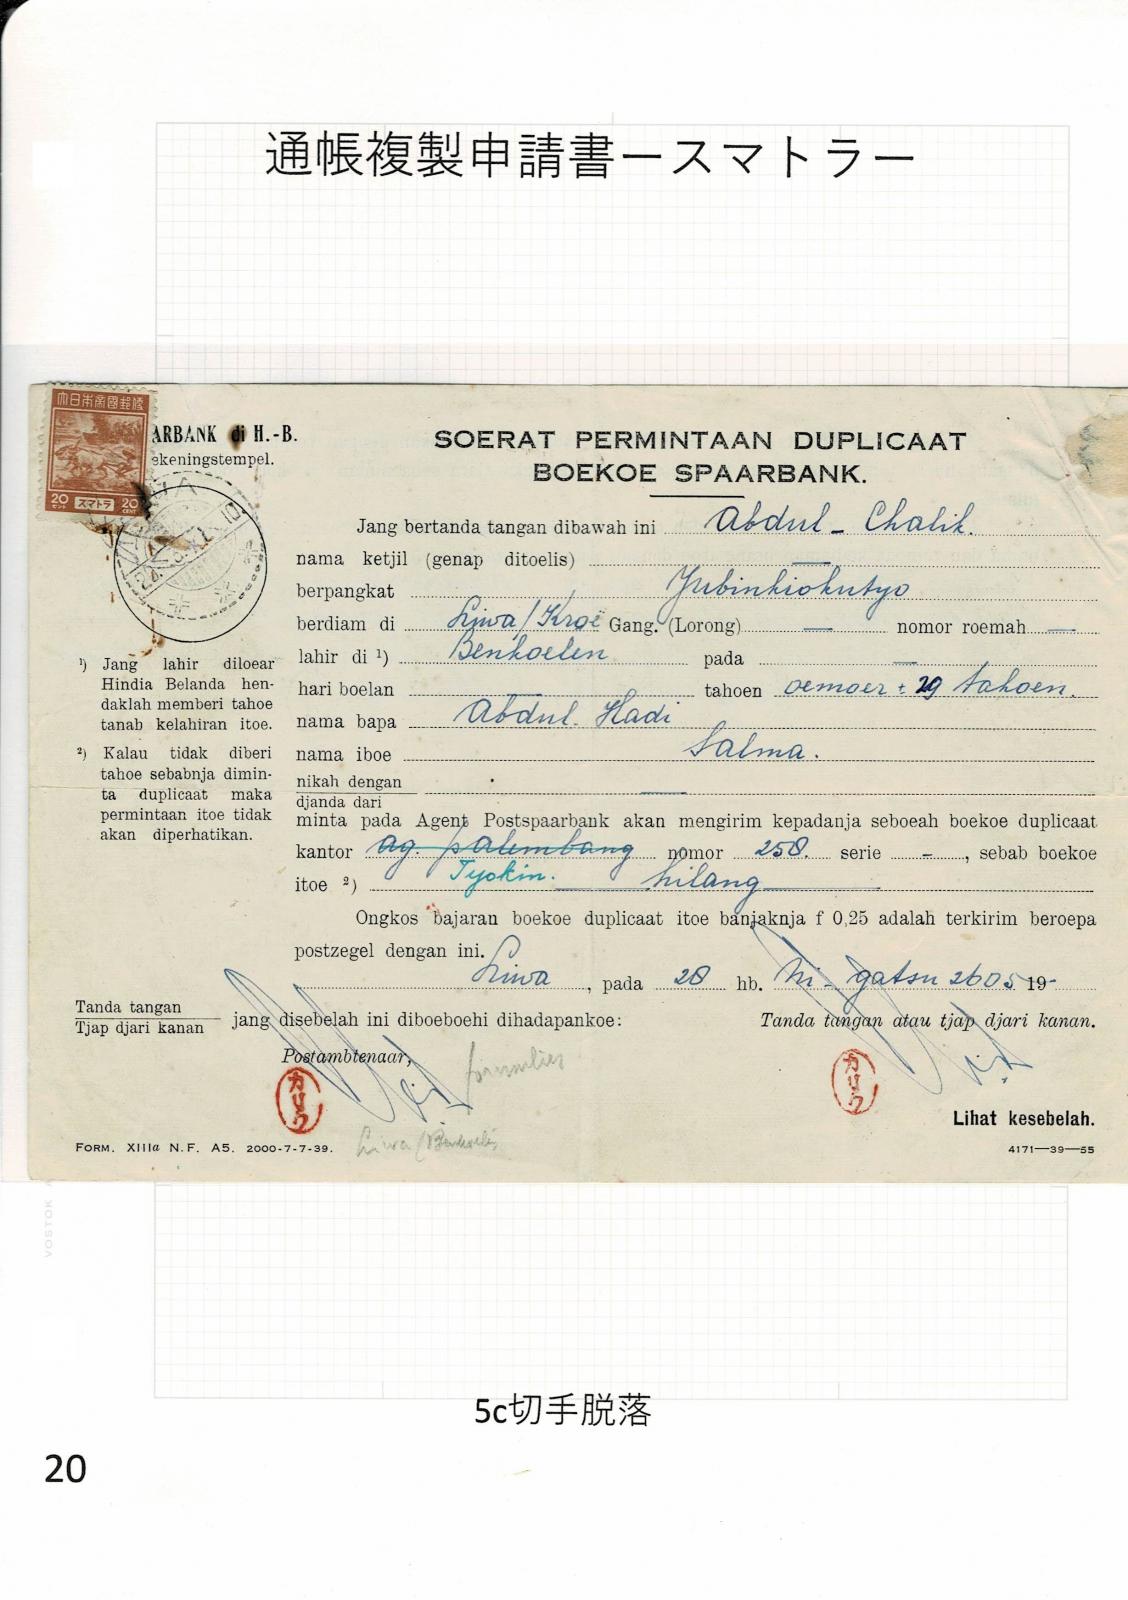 通帳複製申請書ースマトラー
大日本帝國郵便
20 セント スマトラ 20 CENT
ARBANK di H.-B.
ekeningstempel.
SOERAT PERMINTAAN DUPLICAAT
BOEKOE SPAARBANK.
Jang bertanda tangan dibawah ini Abdul - Chalik.
nama ketjil (genap ditoelis)
berpangkat Yubinkiokutyo
berdiam di Liwa/Kroë Gang. (Lorong) — nomor roemah —
lahir di ¹) Benkoelen pada —
hari boelan — tahoen oemoer ± 29 tahoen.
nama bapa Abdul Hadi
nama iboe Salma.
nikah dengan
djanda dari —
minta pada Agent Postspaarbank akan mengirim kepadanja seboeah boekoe duplicaat
kantor ag. palembang nomor 258. serie -, sebab boekoe
Tyokin.
itoe ²) hilang
Ongkos bajaran boekoe duplicaat itoe banjaknja f 0,25 adalah terkirim beroepa
postzegel dengan ini.
Liwa, pada 28 hb. Ni - gatsu 2605 19-
¹) Jang lahir diloear
Hindia Belanda hen-
daklah memberi tahoe
tanab kelahiran itoe.
²) Kalau tidak diberi
tahoe sebabnja dimin-
ta duplicaat maka
permintaan itoe tidak
akan diperhatikan.
Tanda tangan
Tjap djari kanan
jang disebelah ini diboeboehi dihadapankoe:
Tanda tangan atau tjap djari kanan.
Postambtenaar,
カリク
カリク
Lihat kesebelah.
FORM. XIIIa N.F. A5. 2000-7-7-39.
Liwa (Benkoelen
4171—39—55
VOSTOK
5c切手脱落
20